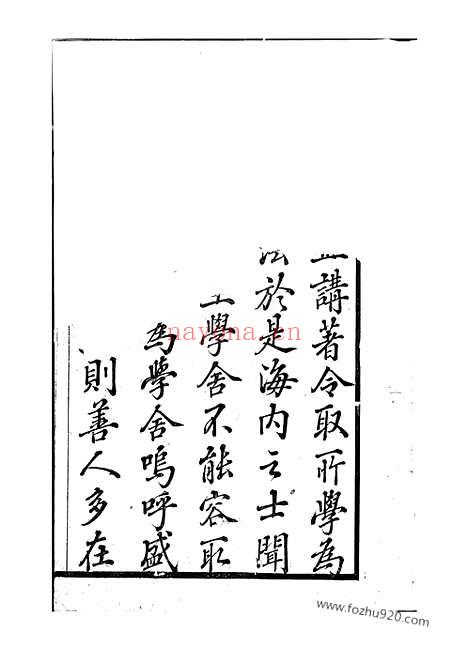 講著令取所學為
法於是海内之士聞
學舍不能容取
為學舍嗚呼盛
則善人多在
nayona.cn
www.fozhu920.com